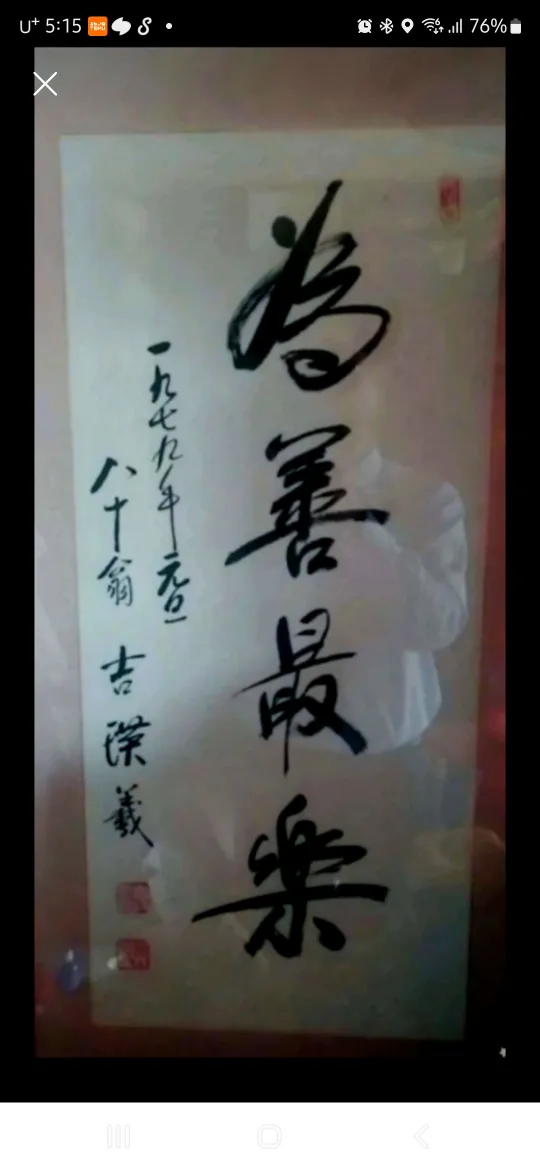 U+ 5:15 76%
為善最樂
一九七九年元旦
八十翁 吉璞義